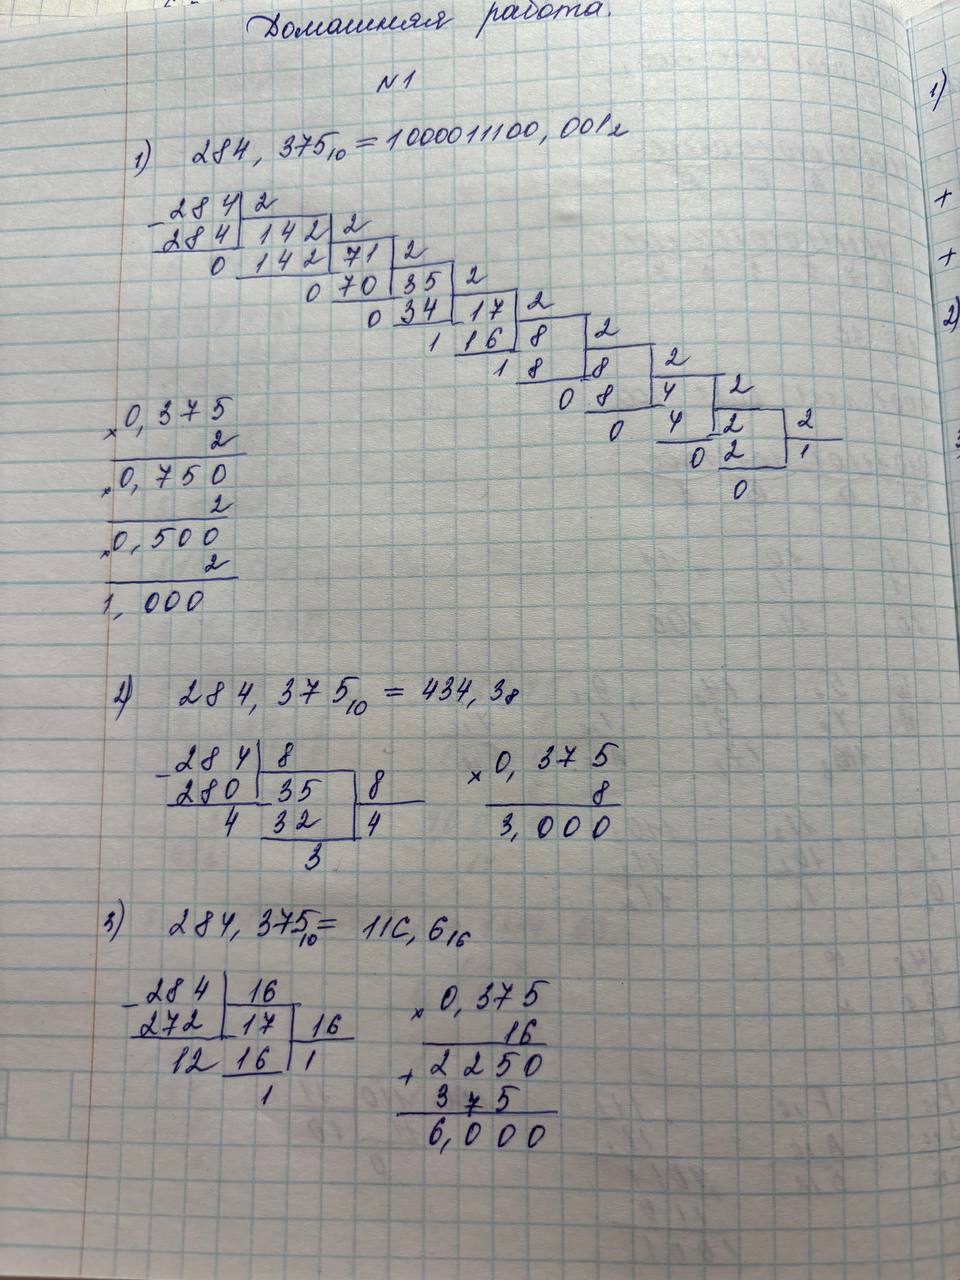 Домашняя работа.
N1
1) 284,375₁₀ = 1000011100,001₂
284 2
284 142 2
0 142 71 2
0 70 35 2
0 34 17 2
1 16 8 2
1 8 8 2
0 8 4 2
0 4 2 2
0 2 1
0
× 0,375
2
× 0,750
2
× 0,500
2
1,000
2) 284,375₁₀ = 434,3₈
- 284 8 × 0,375
280 35 8 8
4 32 4 3,000
3
3) 284,375₁₀ = 11C,6₁₆
- 284 16 × 0,375
272 17 16 16
12 16 1 + 2250
1 375
6,000
1)
+
+
2)